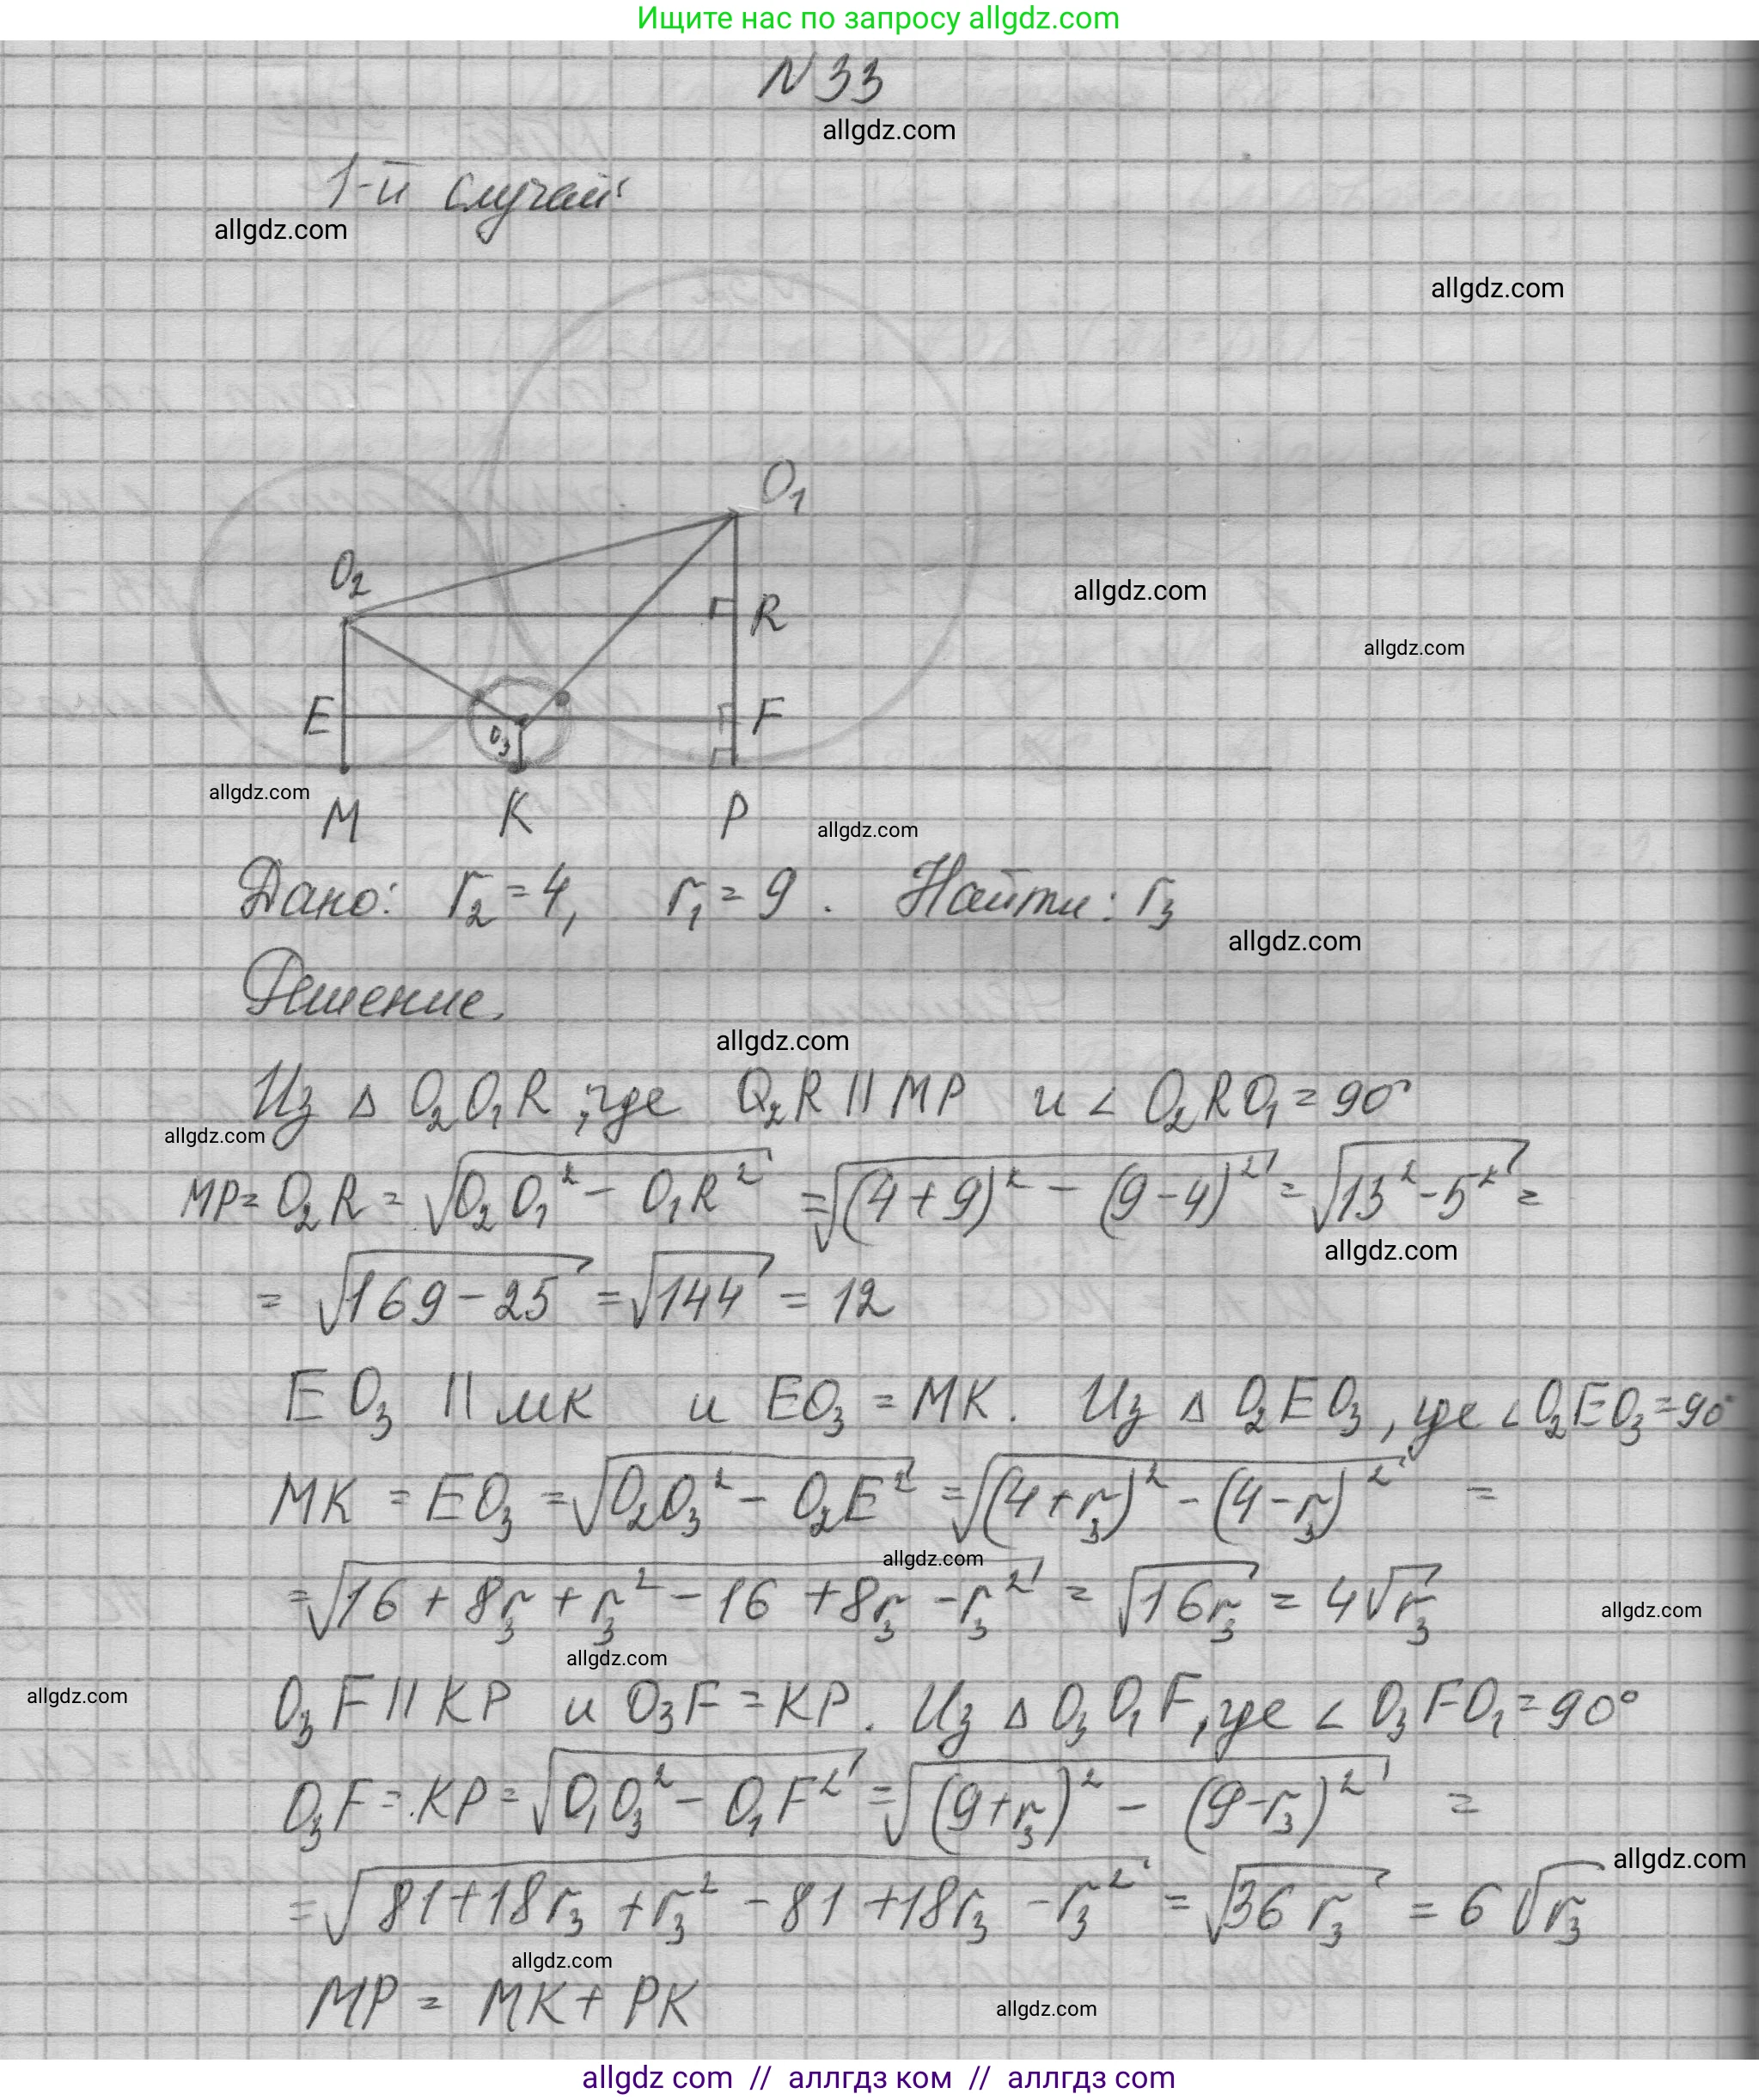 Ищите нас по запросу allgdz.com
N 33
allgdz.com
1-й случай:
allgdz.com
allgdz.com
O₁
O₂
allgdz.com
R
allgdz.com
E
F
O₃
allgdz.com
M K P
allgdz.com
Дано: r₂ = 4, r₁ = 9. Найти: r₃
allgdz.com
Решение.
allgdz.com
Из Δ O₂O₁R, где O₂R || MP и ∠ O₂RO₁ = 90°
allgdz.com
MP = O₂R = √(O₂O₁² − O₁R²) = √((4+9)² − (9−4)²) = √(13² − 5²) =
allgdz.com
= √(169 − 25) = √144 = 12
EO₃ || MK и EO₃ = MK. Из Δ O₂EO₃, где ∠O₂EO₃ = 90°
MK = EO₃ = √(O₂O₃² − O₂E²) = √((4+r₃)² − (4−r₃)²) =
allgdz.com
= √(16 + 8r₃ + r₃² − 16 + 8r₃ − r₃²) = √(16r₃) = 4√r₃
allgdz.com
allgdz.com
allgdz.com
O₃F || KP и O₃F = KP. Из Δ O₃O₁F, где ∠ O₃FO₁ = 90°
O₃F = KP = √(O₁O₃² − O₁F²) = √((9+r₃)² − (9−r₃)²) =
allgdz.com
= √(81 + 18r₃ + r₃² − 81 + 18r₃ − r₃²) = √(36r₃) = 6√r₃
allgdz.com
MP = MK + PK
allgdz.com
allgdz com // аллгдз ком // аллгдз com